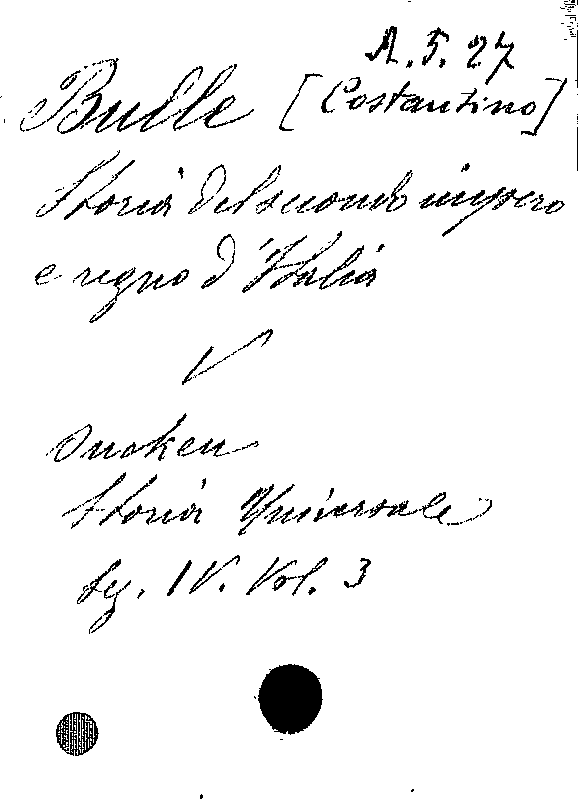 A. 5. 27
Bulle [Costantino]
Storia del secondo impero
e regno d'Italia
V
Oncken
Storia Universale
Sez. IV. Vol. 3